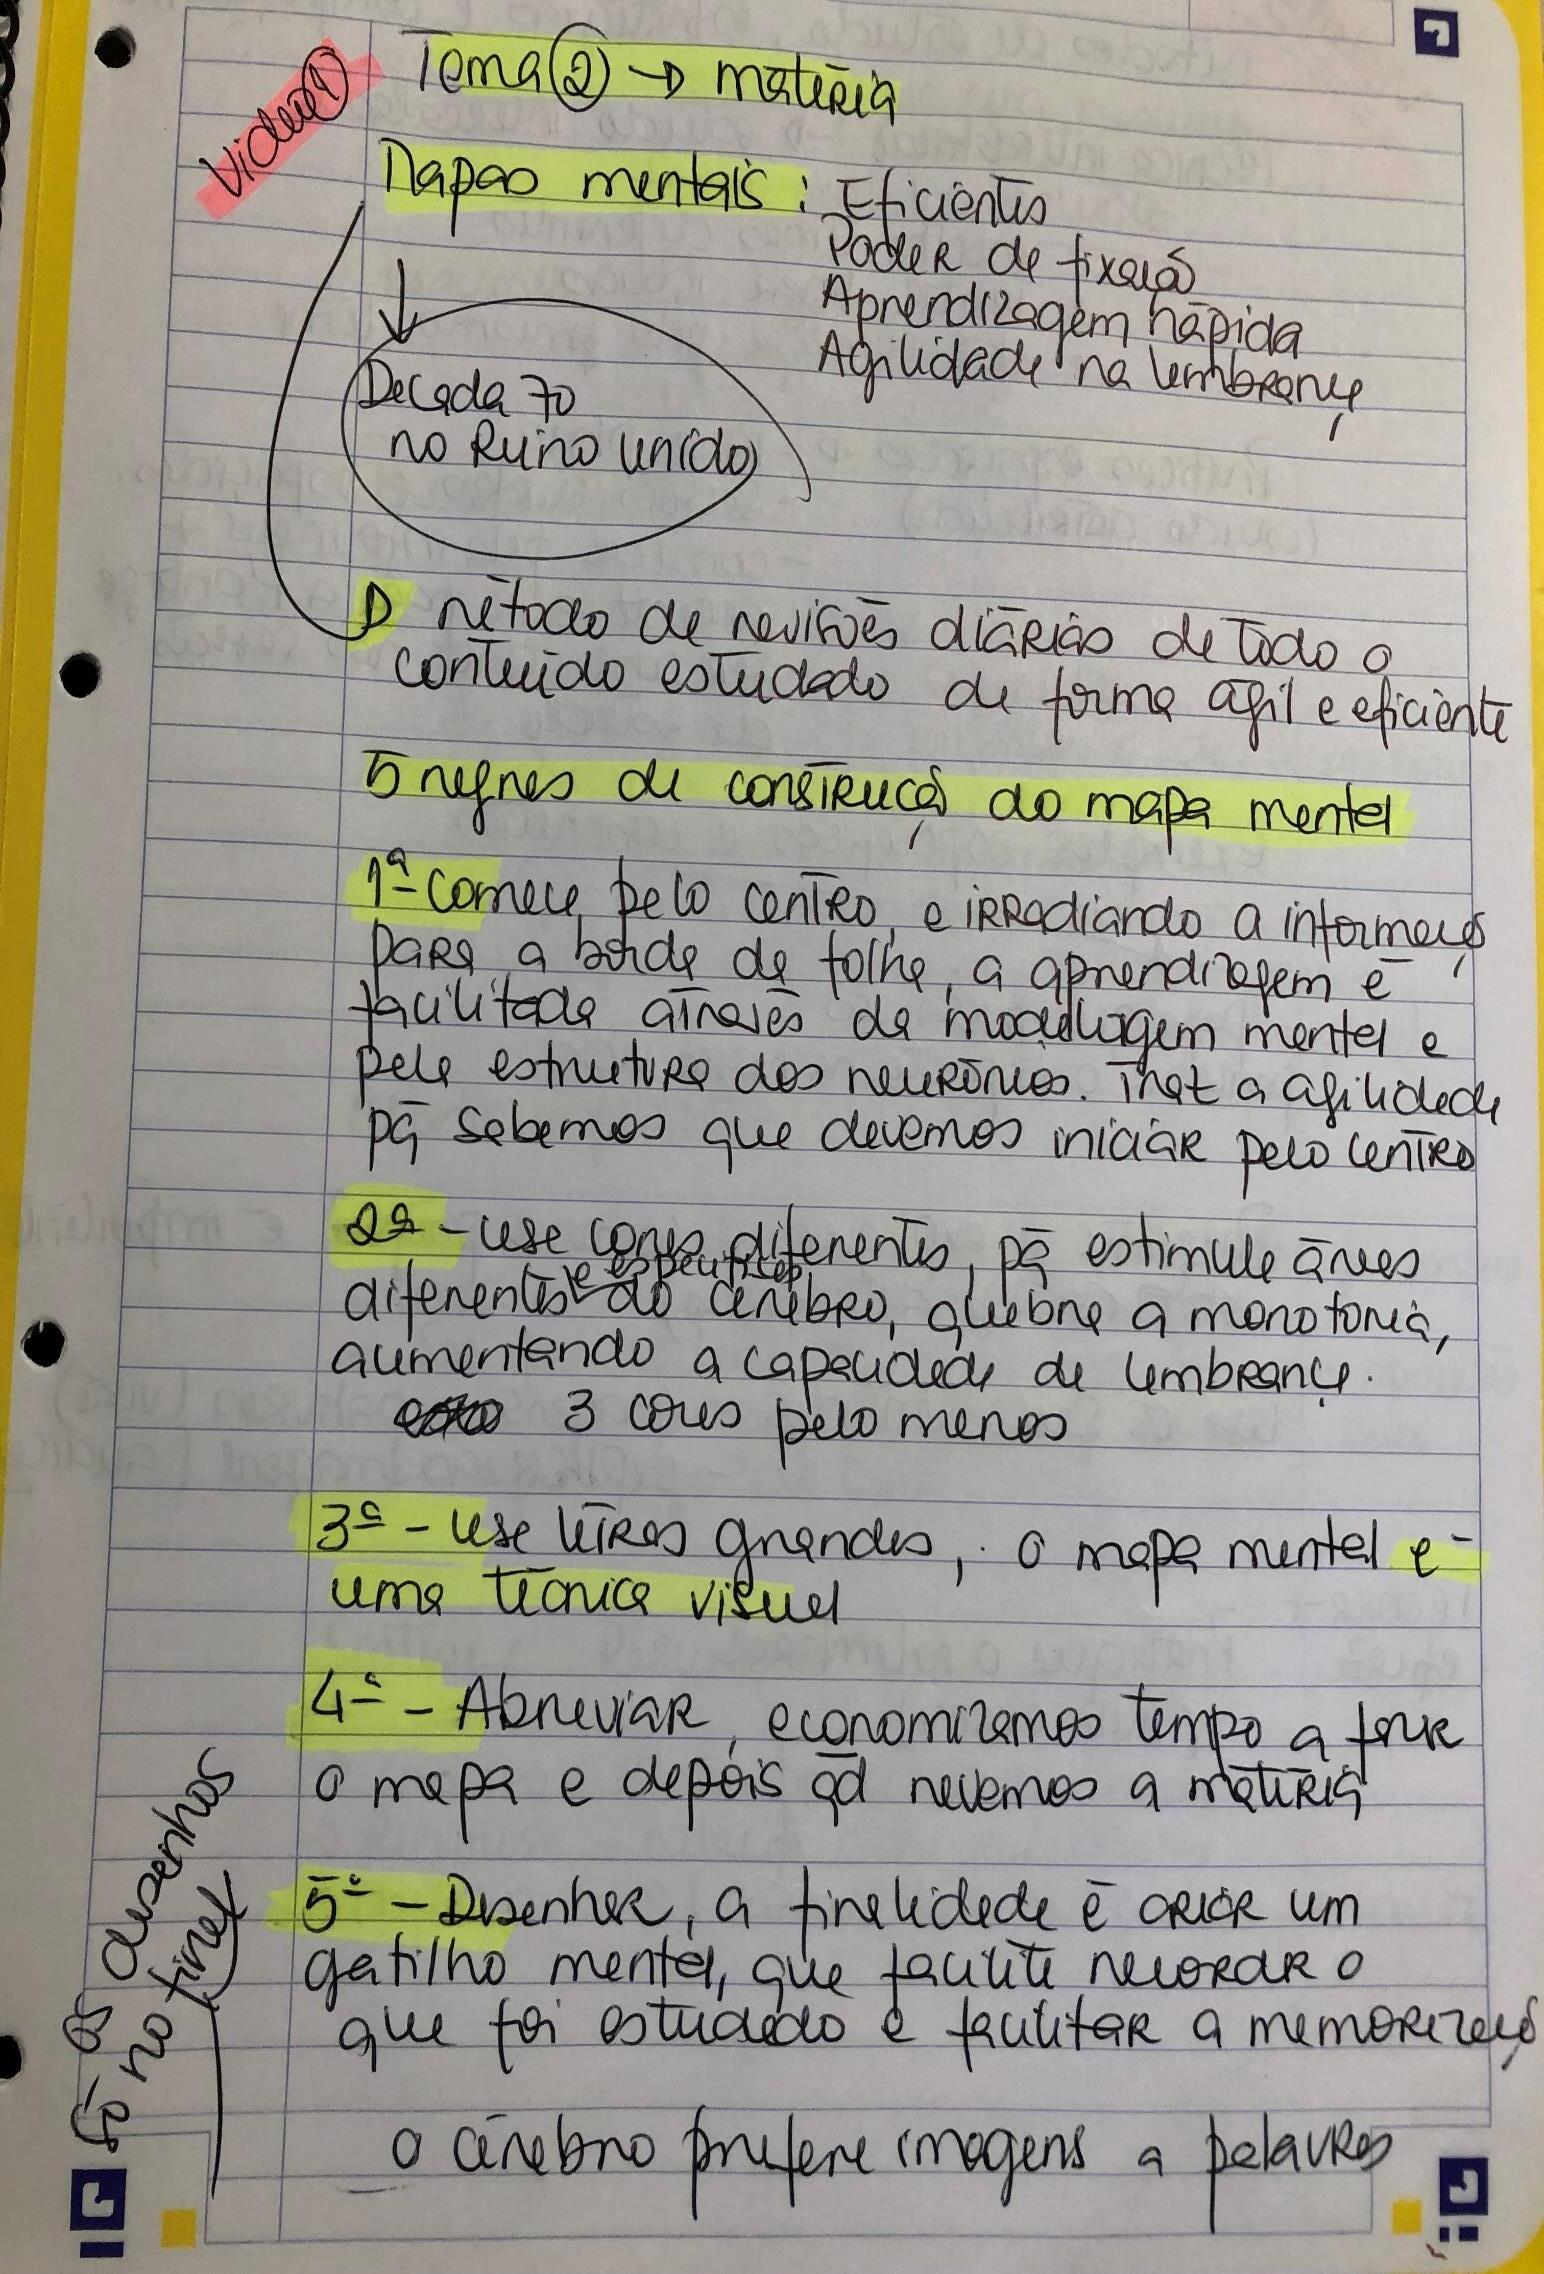 Video 1
Tema 2 → matéria
Mapas mentais : Eficientes
Poder de fixação
Aprendizagem rápida
Agilidade na lembrança
Decada 70
no Reino unido
método de revisões diárias de todo o
conteúdo estudado de forma ágil e eficiente
5 regras de construção do mapa mental
1ª - Comece pelo centro, e irradiando a informação
para a borda da folha, a aprendizagem é
facilitada através da modelagem mental e
pela estrutura dos neurônios. Traz a agilidade
pq sabemos que devemos iniciar pelo centro
2ª - use cores diferentes, pq estimula áreas
diferentes e especificas do cérebro, quebra a monotonia,
aumentando a capacidade de lembrança.
3 cores pelo menos
3ª - Use letras grandes, o mapa mental é
uma técnica visual
4ª - Abreviar, economizamos tempo a fazer
o mapa e depois qd revemos a matéria
5ª - Desenhar, a finalidade é criar um
gatilho mental, que facilite recordar o
que foi estudado e facilitar a memorização
os desenhos
só no final
o cérebro prefere imagens a palavras